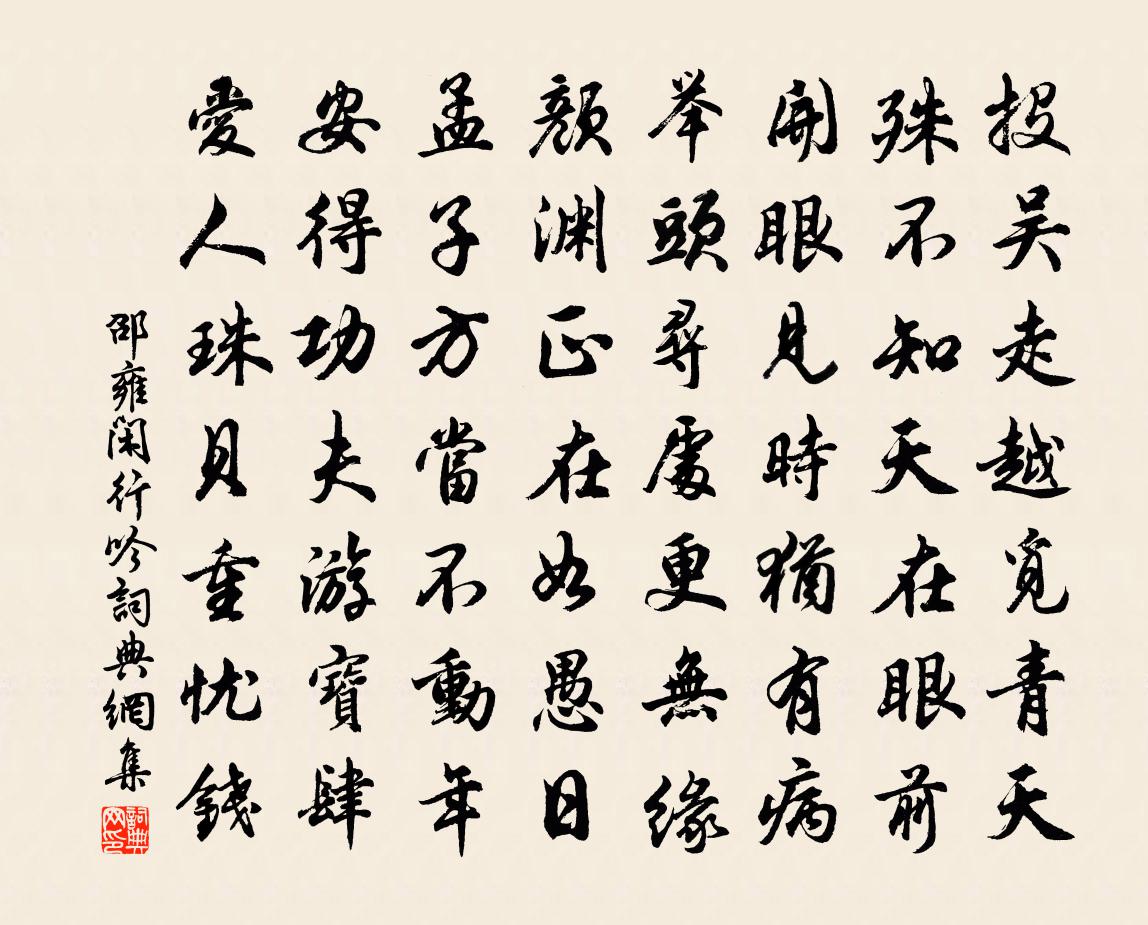 投吴走越覓青天
殊不知天在眼前
開眼見時猶有病
举頭尋處更無緣
顏淵正在如愚日
孟子方當不動年
安得功夫游寶肆
愛人珠貝重忧錢
邵雍閑行吟詞典網集
詞典网印